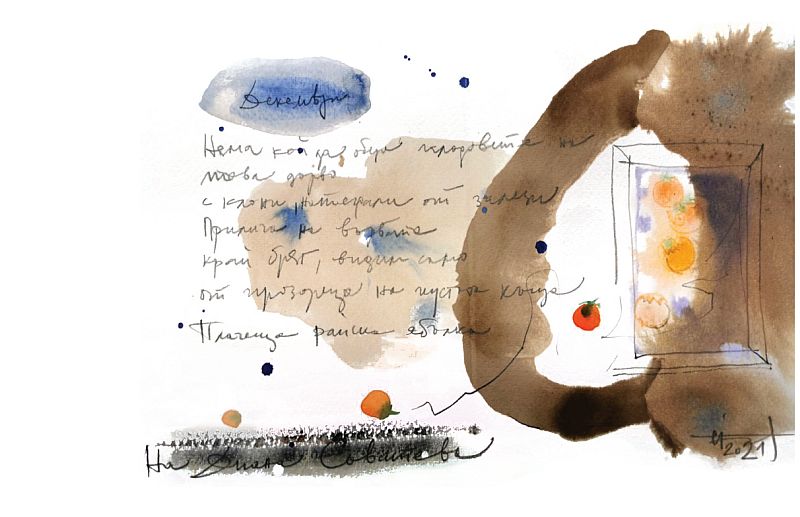 Декември
Няма кой да обере плодовете на
това дърво
с клони, натежали от залези
Прилича на върбите
край бряг, видим само
от прозореца на пустата къща
Плачеща райска ябълка
На Диана Саватева
2021